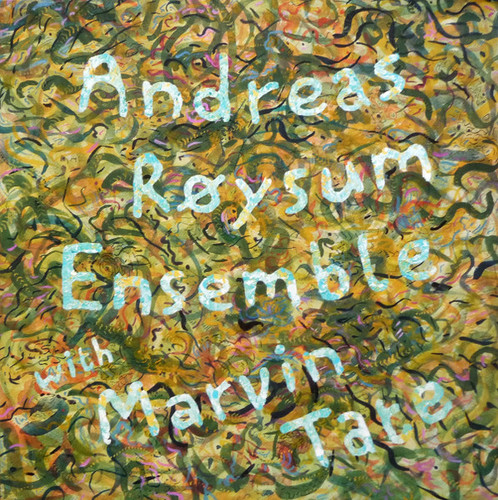 Andreas
Røysum
Ensemble
with Marvin
Tate